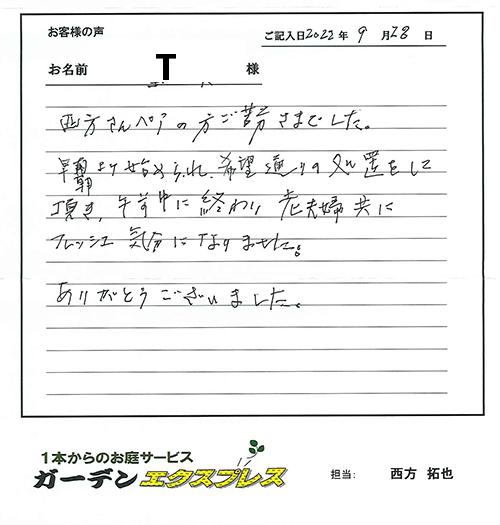 お客様の声
ご記入日2022年 9月28日
お名前 T 様
西方さんペアの方ご苦労さまでした。
早朝より始められ、希望通りの処置をして
頂き、午前中に終わり 老夫婦共に
フレッシュ気分になりました。
ありがとうございました。
1本からのお庭サービス
ガーデンエクスプレス
担当: 西方 拓也